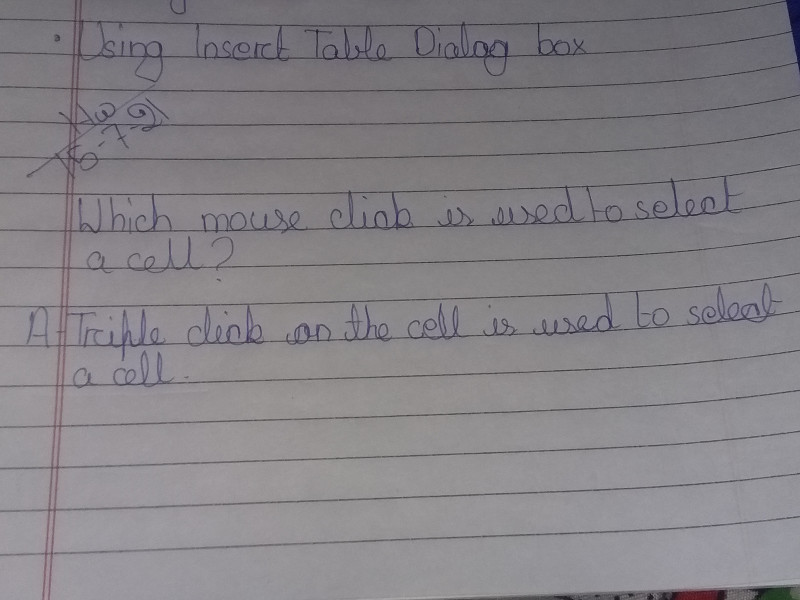 • Using Insert Table Dialog box
Which mouse click is used to select
a cell?
A- Triple click on the cell is used to select
a cell.